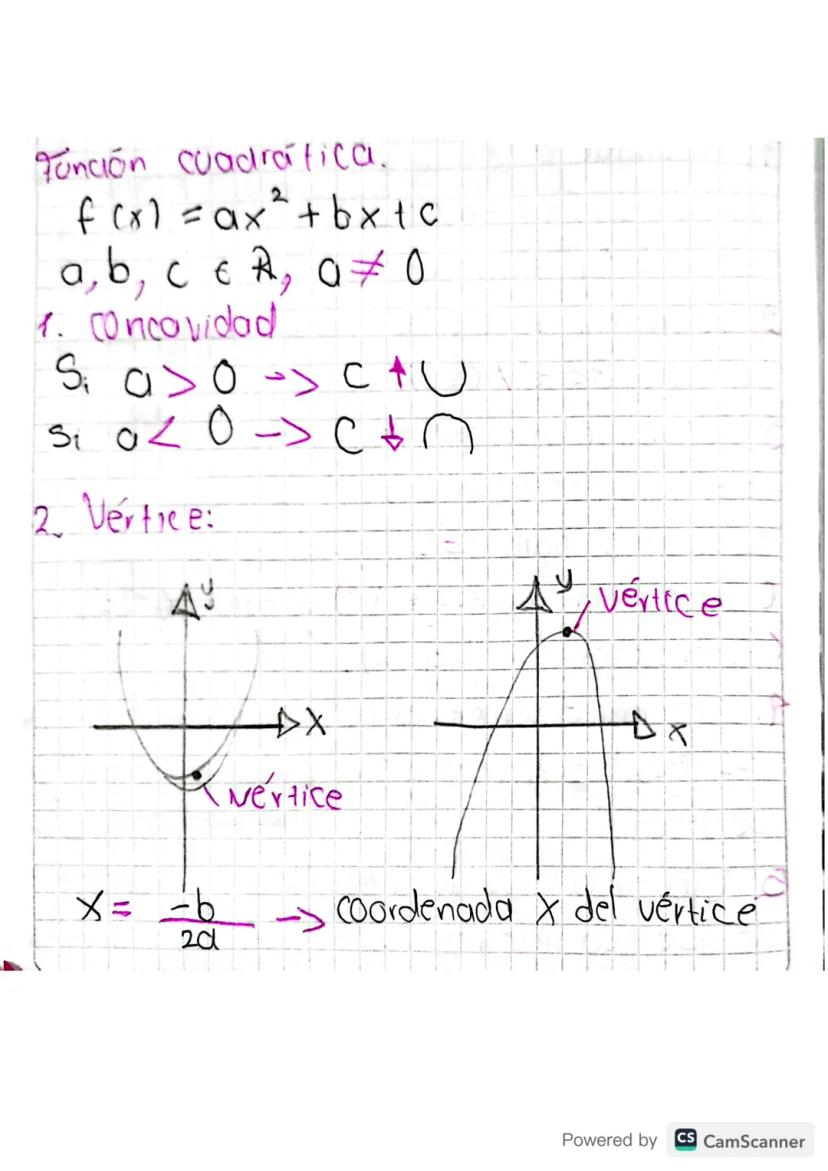 Función cuadrática.
f(x) = ax² + bx + c
a, b, c ∈ ℝ, a ≠ 0
1. Concavidad
Si a > 0 -> C ↑ ∪
Si a < 0 -> C ↓ ∩
2. Vértice:
y
x
vértice
y
vértice
x
x = -b/2a -> coordenada x del vértice
Powered by CS CamScanner